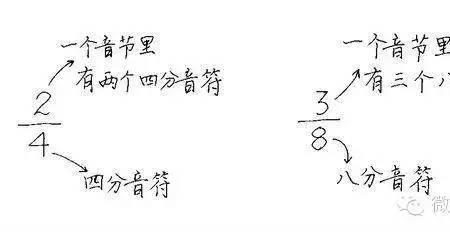 一个音节里
有两个四分音符
2
4
四分音符
一个音节里
有三个
3
8
八分音符
微